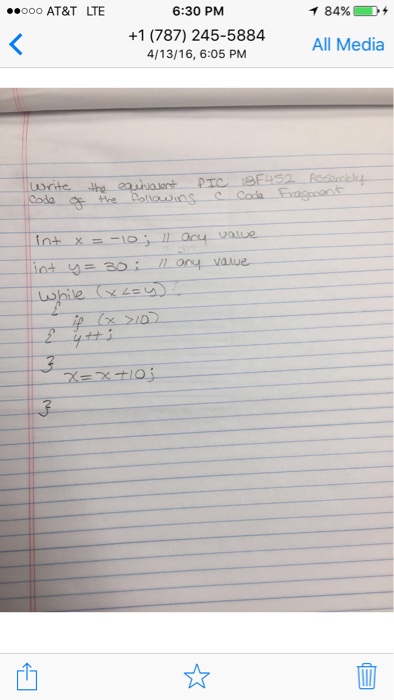 AT&T LTE 6:30 PM 84%
+1 (787) 245-5884
4/13/16, 6:05 PM
All Media
write the equivalent PIC 18F452 Assembly
Code of the following C Code Fragment
int x = -10; // any value
int y = 30; // any value
while (x <= y)
{
if (x >10)
{ y++;
}
x = x +10;
}